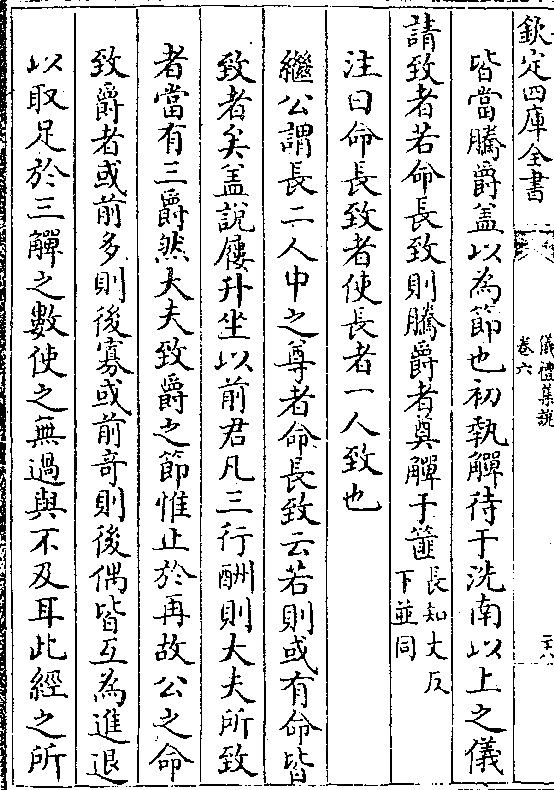 欽定四庫全書
儀禮集說
卷六
皆當騰爵盖以為節也初執觶待于洗南以上之儀
請致者若命長致則騰爵者奠觶于篚長知丈反下並同
注曰命長致者使長者一人致也
繼公謂長二人中之尊者命長致云若則或有命皆
致者矣盖說屨升坐以前君凡三行酬則大夫所致
者當有三爵然大夫致爵之節惟止於再故公之命
致爵者或前多則後寡或前奇則後偶皆互為進退
以取足於三觶之數使之無過與不及耳此經之所